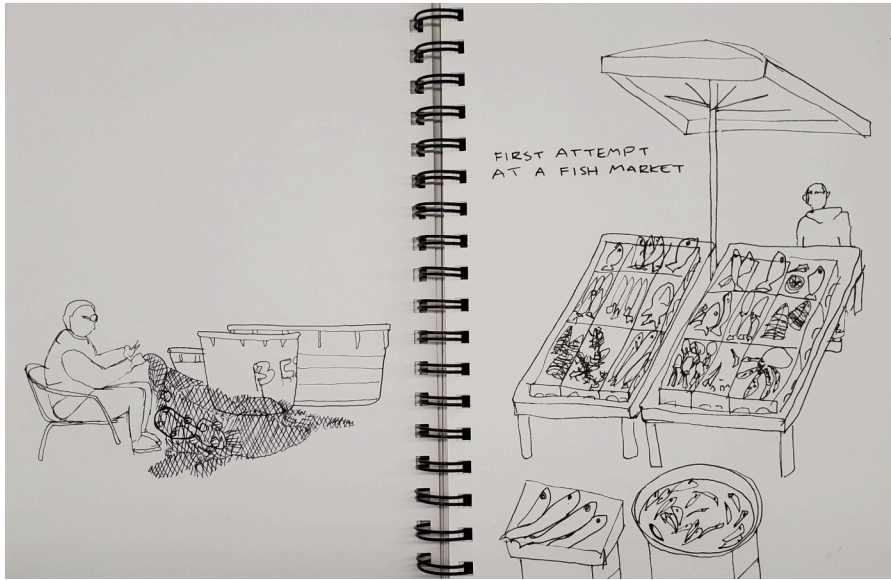 FIRST ATTEMPT
AT A FISH MARKET